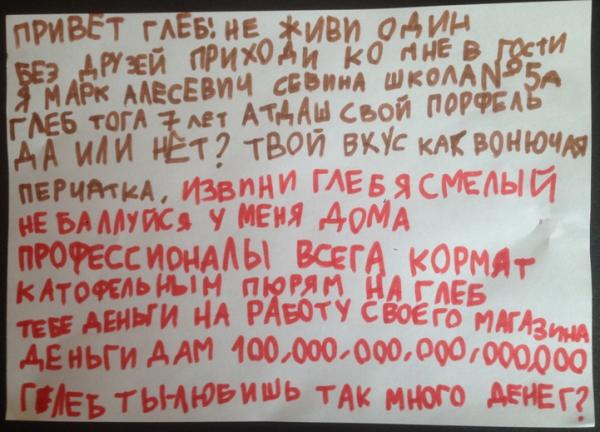 ПРИВЕТ ГЛЕБ! НЕ ЖИВИ ОДИН
БЕЗ ДРУЗЕЙ ПРИХОДИ КО МНЕ В ГОСТИ
Я МАРК АЛЕСЕВИЧ СЕВИНА ШКОЛА №5А
ГЛЕБ ТОГА 7 ЛЕТ АТДАШ СВОЙ ПОРФЕЛЬ
ДА ИЛИ НЕТ? ТВОЙ ВКУС КАК ВОНЮЧАЯ
ПЕРЧАТКА. ИЗВИНИ ГЛЕБ Я СМЕЛЫЙ
НЕ БАЛЛУЙСЯ У МЕНЯ ДОМА
ПРОФЕССИОНАЛЫ ВСЕГА КОРМЯТ
КАТОФЕЛЬНЫМ ПЮРЯМ НА ГЛЕБ
ТЕБЕ ДЕНЬГИ НА РАБОТУ СВОЕГО МАГАЗИНА
ДЕНЬГИ ДАМ 100,000,000,000,000,000
ГЛЕБ ТЫ ЛЮБИШЬ ТАК МНОГО ДЕНЕГ?